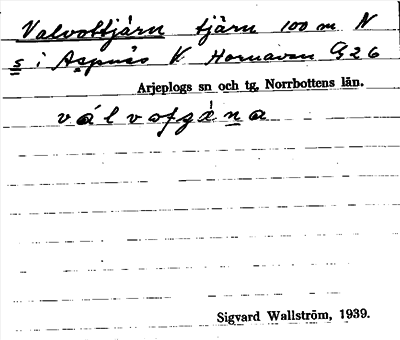 Valvottjärn tjärn 100 m N
s i Aspnäs V. Hornavan G 26
Arjeplogs sn och tg, Norrbottens län.
Sigvard Wallström, 1939.